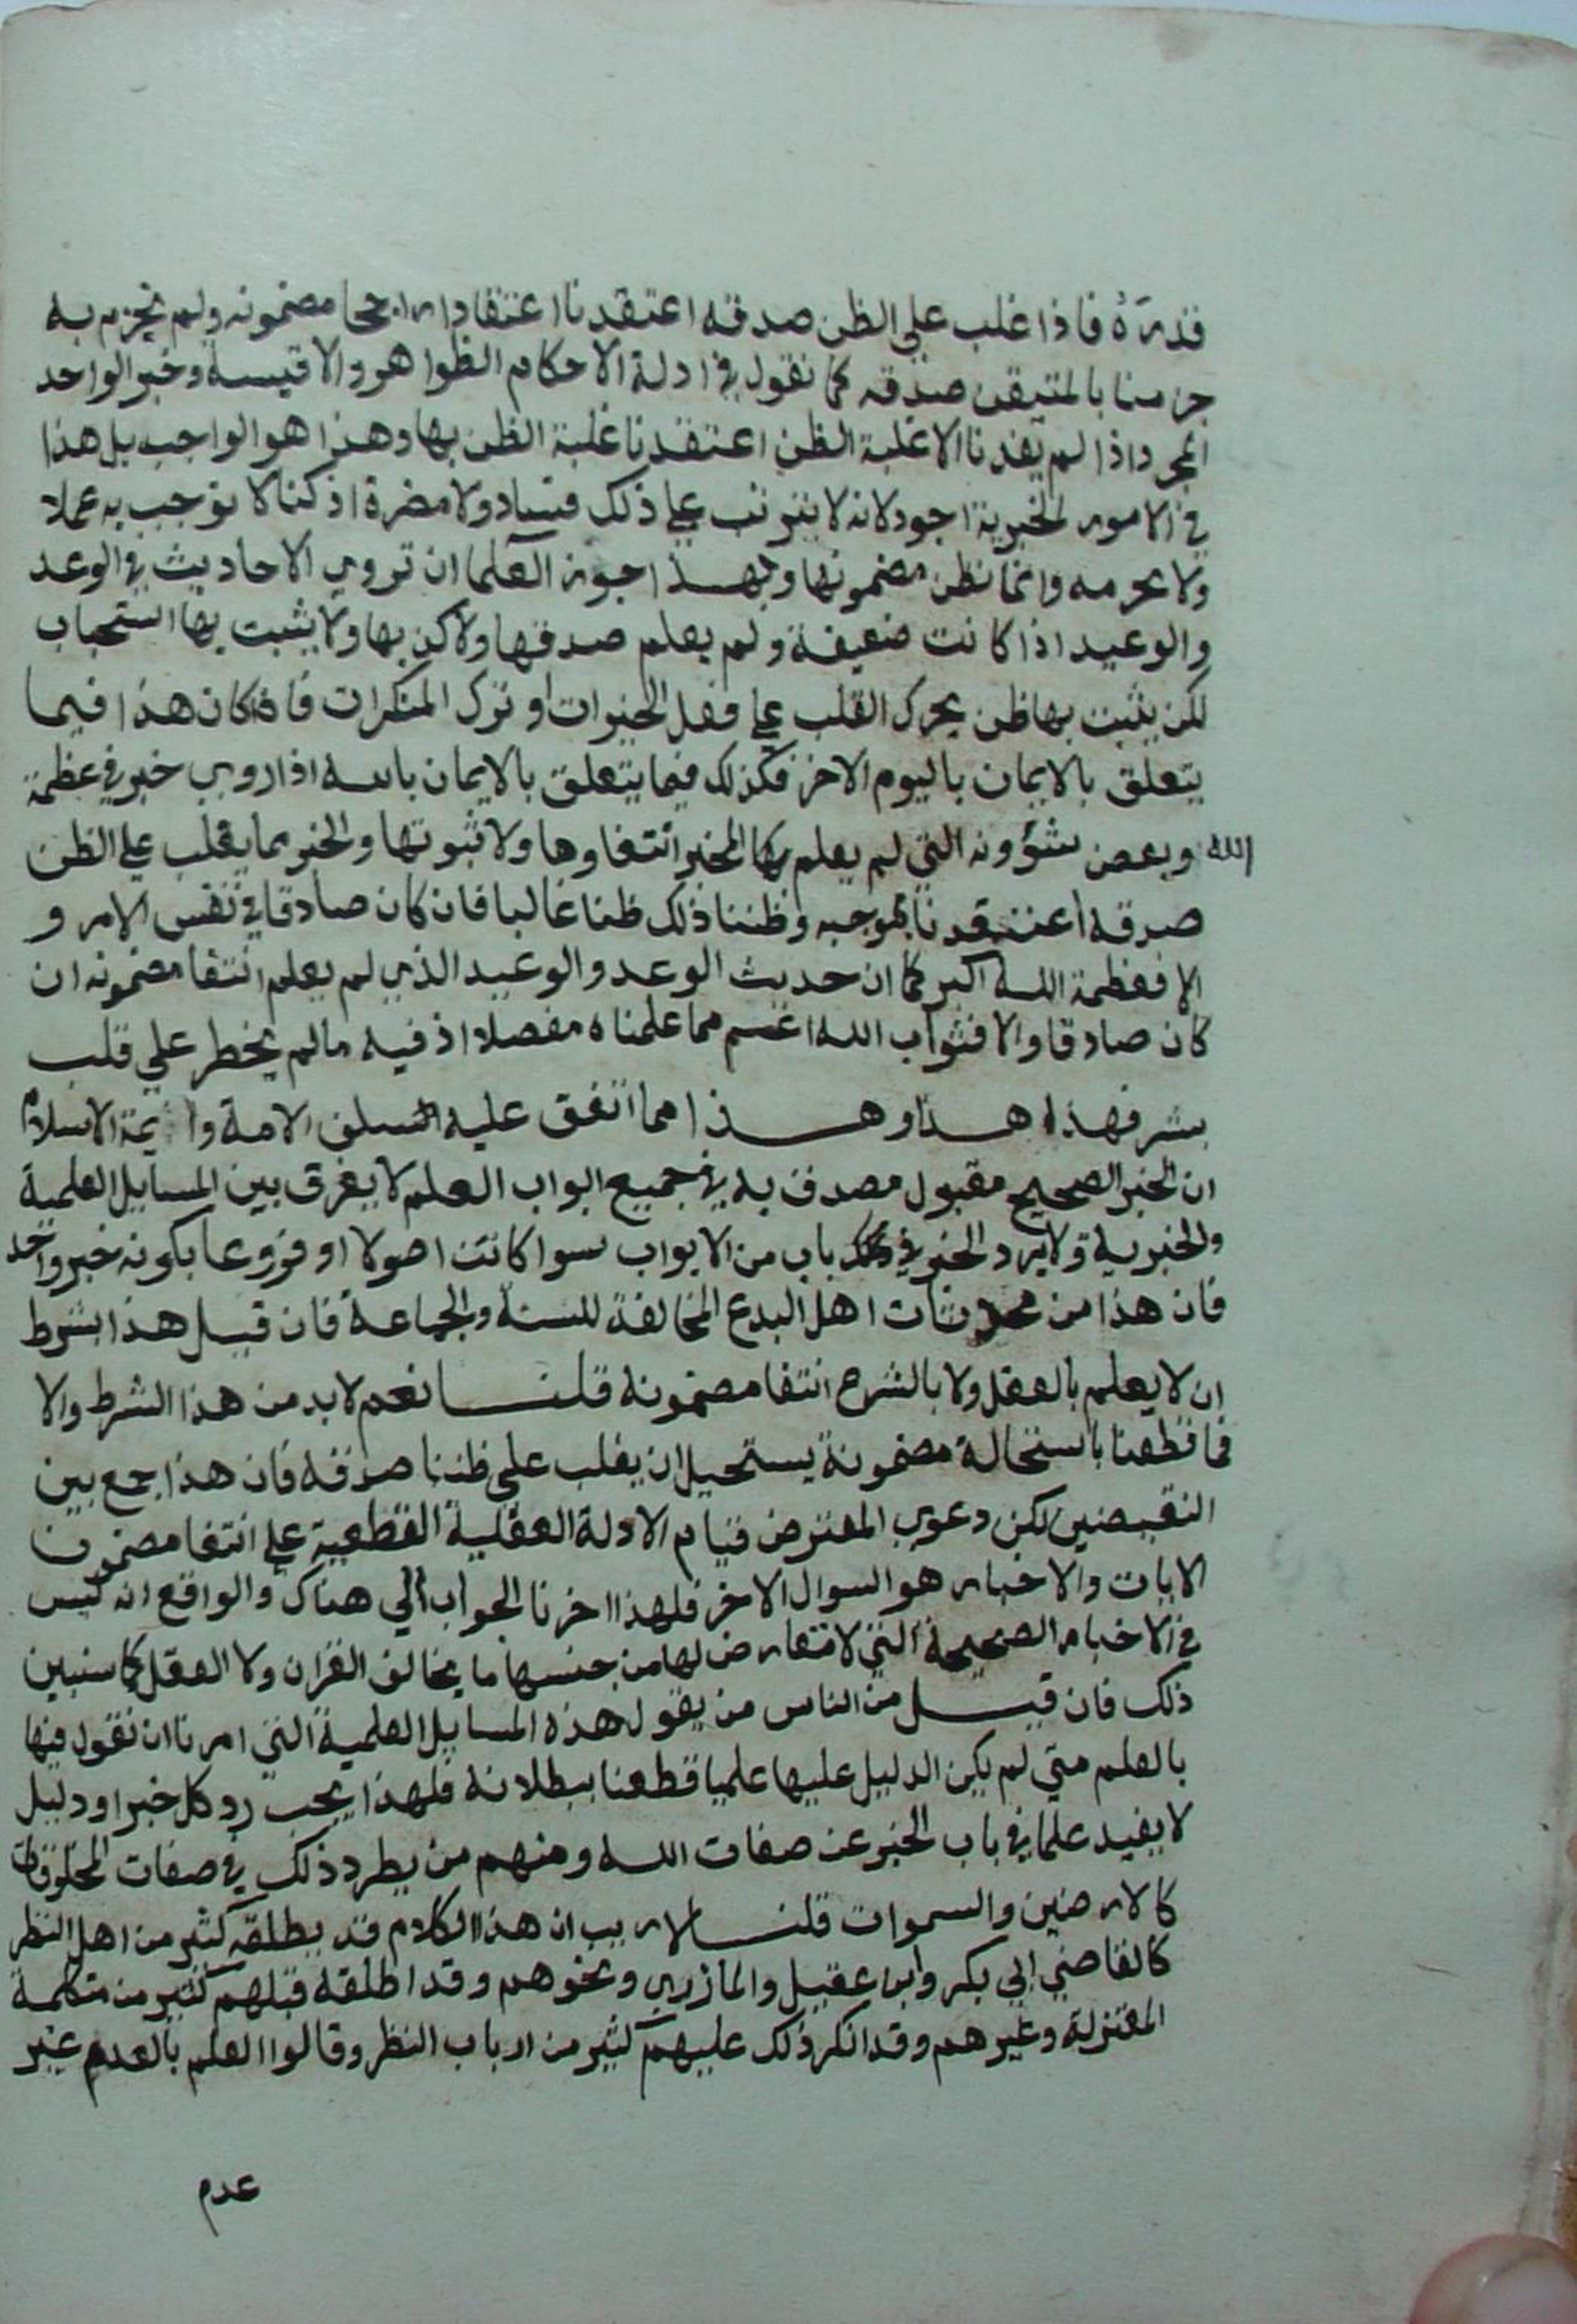 قدره فاذا غلب علي الظن صدقه اعتقدنا اعتقادا راجحا مضمونه ولم نجزم به
جزمنا بالمتيقن صدقه كما نقول في ادلة الاحكام الظواهر والاقيسة وخبر الواحد
المجرد اذا لم يفدنا الا غلبة الظن اعتقدنا غلبة الظن بها وهذا هو الواجب بل هذا
في الامور الخبرية اجود لانه لا يترتب علي ذلك فساد ولا مضرة اذ كنا لا نوجب به عملا
ولا نحرمه وانما نظن مضمونها وبهذا جوز العلما ان تروي الاحاديث في الوعد
والوعيد اذا كانت ضعيفة ولم يعلم صدقها ولا كذبها ولا يثبت بها استحباب
لكن يثبت بها ظن يحرك القلب علي فعل الخيرات او ترك المنكرات فاذا كان هذا فيما
يتعلق بالايمان باليوم الاخر فكذلك فيما يتعلق بالايمان بالله اذا روي خبر في عظمة
الله وبعض شؤونه التي لم يعلم بها المخبر انتفاوها ولا ثبوتها والخبر مما يغلب علي الظن
صدقه اعتقدنا بموجبه وظننا ذلك ظنا غالبا فان كان صادقا في نفس الامر و
الا فعظمة الله اكبر كما ان حديث الوعد والوعيد الذي لم يعلم انتفا مضمونه ان
كان صادقا والا فثواب الله اعظم مما علمناه مفصلا اذ فيه مالم يخطر علي قلب
بشر فهذا هذا وهذا مما اتفق عليه سلف الامة وايمة الاسلام
ان الخبر الصحيح مقبول مصدق به في جميع ابواب العلم لا يفرق بين المسايل العلمية
والخبرية ولا يرد الخبر في باب من الابواب سوا كانت اصولا او فروعا بكونه خبر واحد
فان هذا من محدثات اهل البدع المخالفة للسنة والجماعة فان قيل هذا بشرط
ان لا يعلم بالعقل ولا بالشرع انتفا مضمونه قلنا نعم لا بد من هذا الشرط والا
فما قطعنا باستحالة مضمونة يستحيل ان يغلب علي ظننا صدقه فان هذا جمع بين
النقيضين لكن دعوي المعترض قيام الادلة العقلية القطعية علي انتفا مضمون
الايات والاخبار هو السوال الاخر فلهذا اخرنا الجواب الي هناك والواقع انه ليس
في الاخبار الصحيحة التي لا متعارض لها من جنسها ما يخالف القران ولا العقل كما سنبين
ذلك فان قيل من الناس من يقول هذه المسايل العلمية التي امرنا ان نقول فيها
بالعلم متي لم يكن الدليل عليها علميا قطعنا ببطلانه فلهذا يجب رد كل خبر او دليل
لا يفيد علما في باب الخبر عن صفات الله ومنهم من يطرد ذلك في صفات المخلوقات
كالارضين والسموات قلنا لا ريب ان هذا الكلام قد يطلقه كثير من اهل النظر
كالقاضي ابي بكر وابن عقيل والمازري ونحوهم وقد اطلقه قبلهم كثير من متكلمة
المعتزلة وغيرهم وقد انكر ذلك عليهم كثير من ارباب النظر وقالوا العلم بالعدم غير
عدم